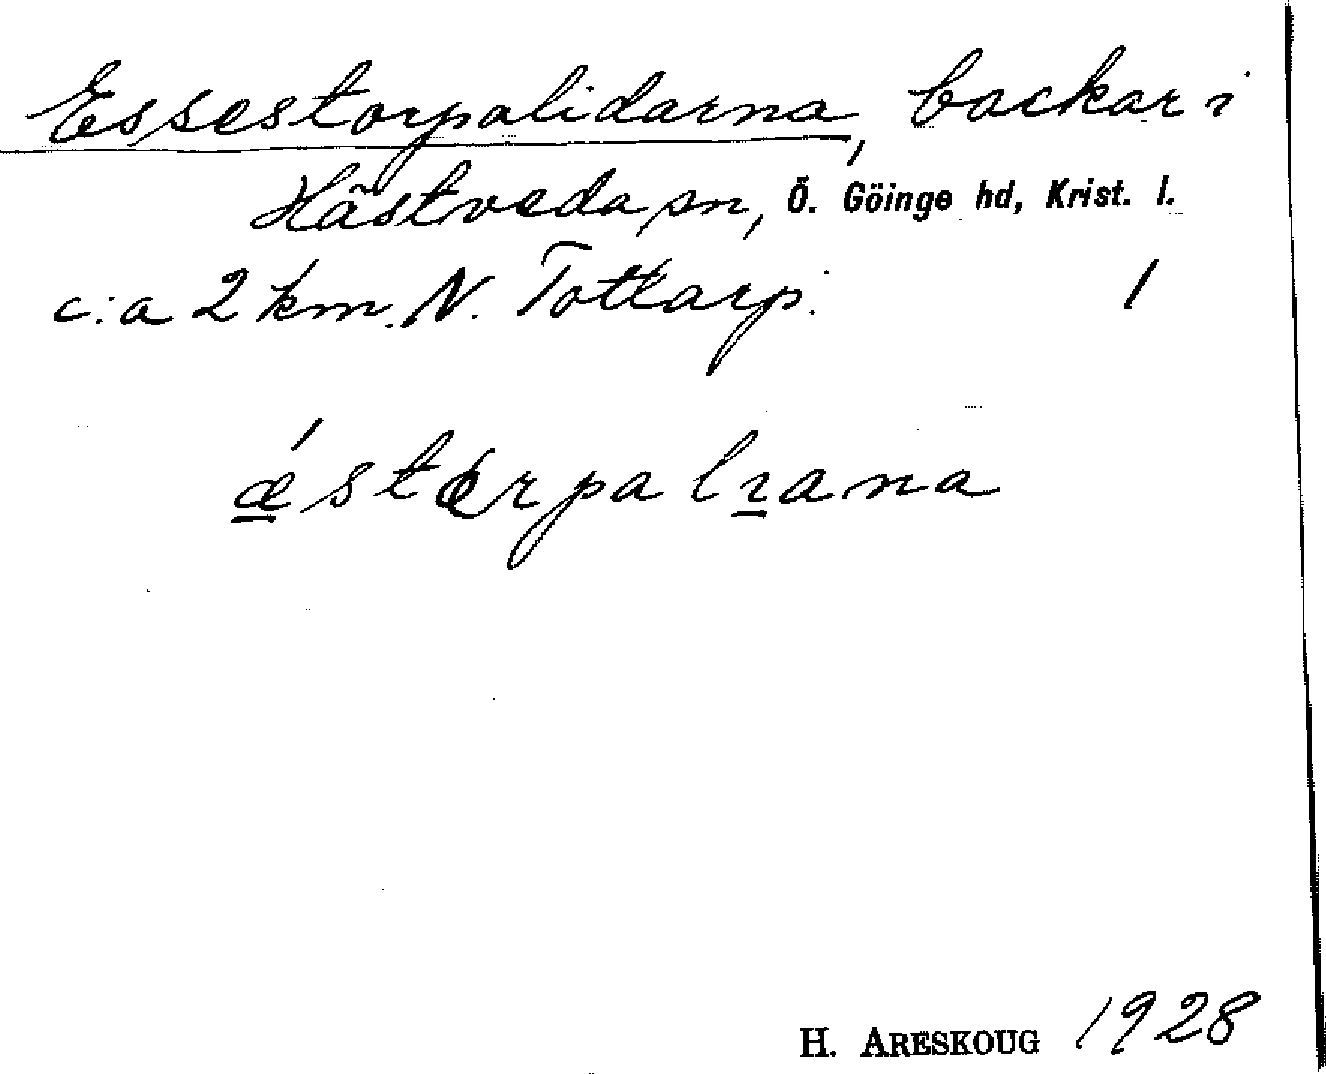 Essestorpalidarna, backar i
Hästveda sn, Ö. Göinge hd, Krist. l.
c:a 2 km. N. Tottarp. 1
ǽstørpalıana
H. ARESKOUG 1928